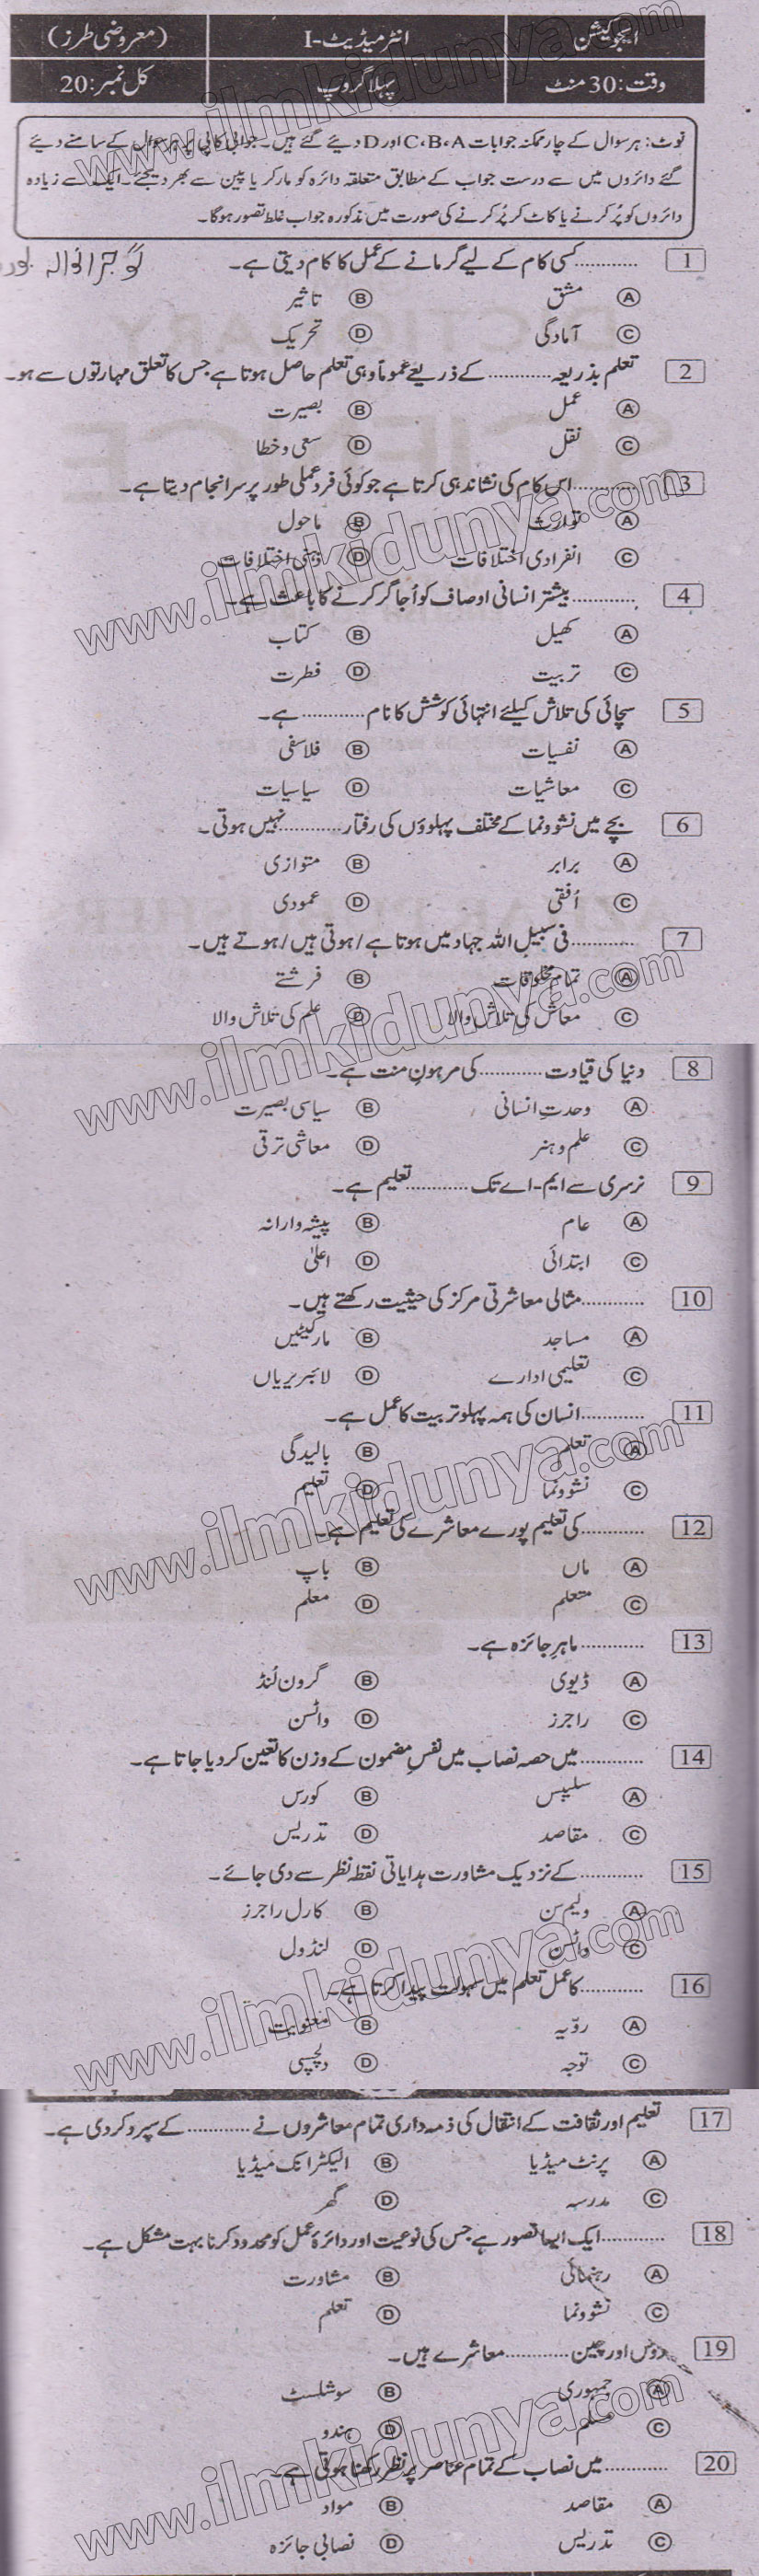 ایجوکیشن انٹرمیڈیٹ-I (معروضی طرز)
وقت:30 منٹ پہلا گروپ کل نمبر:20
نوٹ: ہر سوال کے چار ممکنہ جوابات C،B،A اور D دیئے گئے ہیں۔ جوابی کاپی پر ہر سوال کے سامنے دیئے
گئے دائروں میں سے درست جواب کے مطابق متعلقہ دائرہ کو مارکر یا پین سے بھر دیجئے۔ ایک سے زیادہ
دائروں کو پُر کرنے یا کاٹ کر پُر کرنے کی صورت میں مذکورہ جواب غلط تصور ہوگا۔
گوجرانوالہ بورڈ
1 ............ کسی کام کے لیے گرمانے کے عمل کا کام دیتی ہے۔
A مشق B تاثیر
C آمادگی D تحریک
2 تعلم بذریعہ ............ کے ذریعے عموماً وہی تعلم حاصل ہوتا ہے جس کا تعلق مہارتوں سے ہو۔
A عمل B بصیرت
C نقل D سعی و خطا
3 ............ اس کام کی نشاندہی کرتا ہے جو کوئی فرد عملی طور پر سرانجام دیتا ہے۔
A توارث B ماحول
C انفرادی اختلافات D ذہنی اختلافات
4 ............ بیشتر انسانی اوصاف کو اُجاگر کرنے کا باعث ہے۔
A کھیل B کتاب
C تربیت D فطرت
5 سچائی کی تلاش کیلئے انتہائی کوشش کا نام ............ ہے۔
A نفسیات B فلاسفی
C معاشیات D سیاسیات
6 بچے میں نشوونما کے مختلف پہلوؤں کی رفتار ............ نہیں ہوتی۔
A برابر B متوازی
C اُفقی D عمودی
7 ............ فی سبیل اللہ جہاد میں ہوتا ہے/ہوتی ہیں/ہوتے ہیں۔
A تمام مخلوقات B فرشتے
C معاش کی تلاش والا D علم کی تلاش والا
8 دنیا کی قیادت ............ کی مرہونِ منت ہے۔
A وحدتِ انسانی B سیاسی بصیرت
C علم و ہنر D معاشی ترقی
9 نرسری سے ایم-اے تک ............ تعلیم ہے۔
A عام B پیشہ وارانہ
C ابتدائی D اعلیٰ
10 ............ مثالی معاشرتی مرکز کی حیثیت رکھتے ہیں۔
A مساجد B مارکیٹیں
C تعلیمی ادارے D لائبریریاں
11 ............ انسان کی ہمہ پہلو تربیت کا عمل ہے۔
A تعلم B بالیدگی
C نشوونما D تعلیم
12 ............ کی تعلیم پورے معاشرے کی تعلیم ہے۔
A ماں B باپ
C متعلم D معلم
13 ............ ماہرِ جائزہ ہے۔
A ڈیوی B گرون لُنڈ
C راجرز D واٹسن
14 ............ میں حصہ نصاب میں نفسِ مضمون کے وزن کا تعین کر دیا جاتا ہے۔
A سلیبس B کورس
C مقاصد D تدریس
15 ............ کے نزدیک مشاورت ہدایاتی نقطہ نظر سے دی جائے۔
A ولیم سن B کارل راجرز
C واٹسن D لنڈول
16 ............ کا عمل تعلم میں سہولت پیدا کرتا ہے۔
A روّیہ B معنویت
C توجہ D دلچسپی
17 تعلیم اور ثقافت کے انتقال کی ذمہ داری تمام معاشروں نے ............ کے سپرد کر دی ہے۔
A پرنٹ میڈیا B الیکٹرانک میڈیا
C مدرسہ D گھر
18 ............ ایک ایسا تصور ہے جس کی نوعیت اور دائرۂ عمل کو محدود کرنا بہت مشکل ہے۔
A رہنمائی B مشاورت
C نشوونما D تعلم
19 روس اور چین ............ معاشرے ہیں۔
A جمہوری B سوشلسٹ
C مسلم D ہندو
20 ............ میں نصاب کے تمام عناصر پر نظر رکھنا ہوتی ہے۔
A مقاصد B مواد
C تدریس D نصابی جائزہ
www.ilmkidunya.com
www.ilmkidunya.com
www.ilmkidunya.com
www.ilmkidunya.com
www.ilmkidunya.com
www.ilmkidunya.com